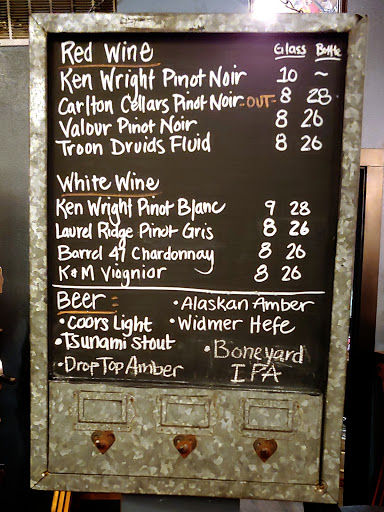 Red Wine Glass Bottle
Ken Wright Pinot Noir 10 ~
Carlton Cellars Pinot Noir -OUT- 8 28
Valour Pinot Noir 8 26
Troon Druids Fluid 8 26
White Wine
Ken Wright Pinot Blanc 9 28
Laurel Ridge Pinot Gris 8 26
Barrel 47 Chardonnay 8 26
K&M Viognior 8 26
Beer:
• Alaskan Amber
• Coors Light • Widmer Hefe
• Tsunami Stout
• Boneyard IPA
• Drop Top Amber